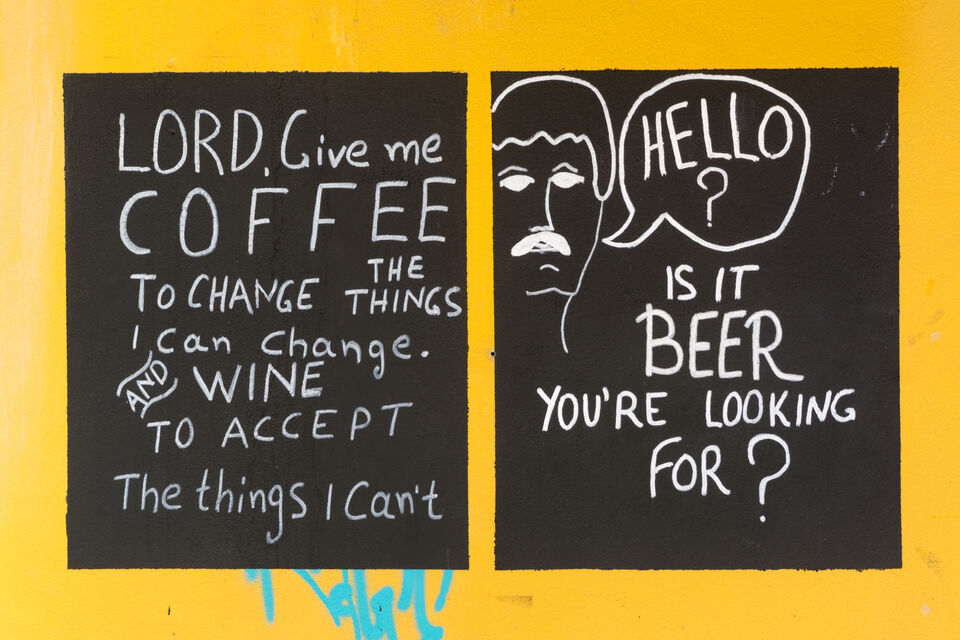 LORD, Give me
COFFEE
TO CHANGE THE THINGS
I can change.
AND WINE
TO ACCEPT
The things I Can't
HELLO
?
IS IT
BEER
YOU'RE LOOKING
FOR?